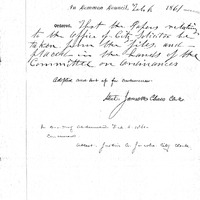 In Common Council, Feb 6 1861
Ordered, That the Papers relating
to the Office of City Solicitor be
taken from the files and
placed in the hands of the
Committee on Ordinances
Adopted and sent up for concurrence.
Attest
Clerk
In
Concurred
Attest. City Clerk